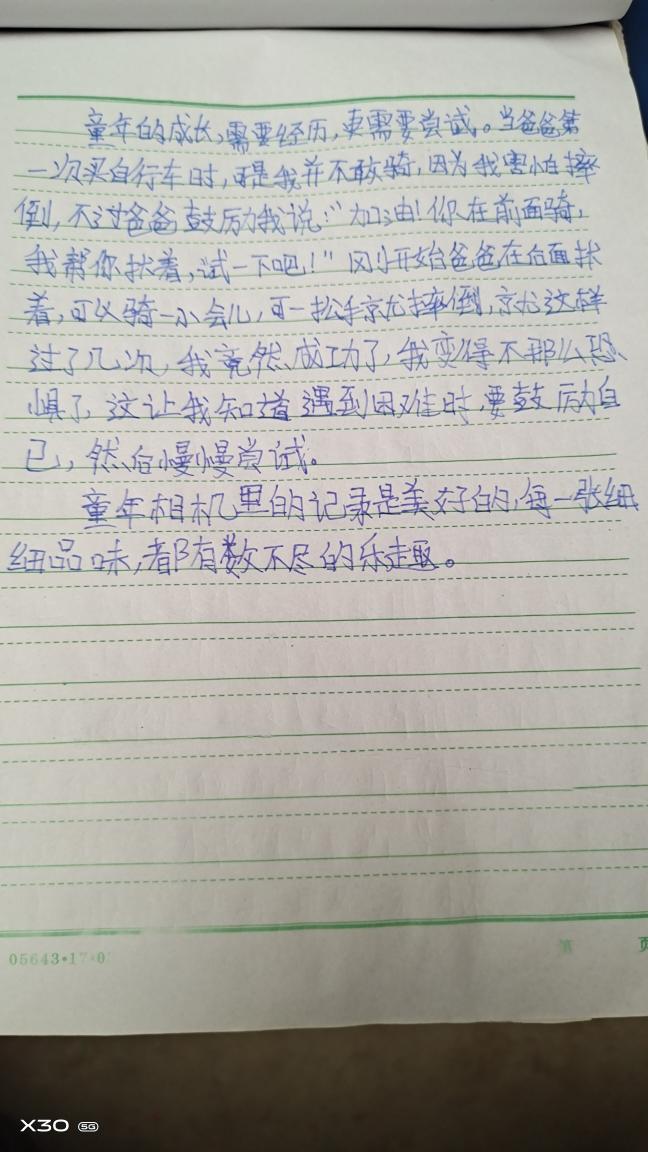 童年的成长,需要经历,更需要尝试。当爸爸第
一次买自行车时,可是我并不敢骑,因为我害怕摔
倒,不过爸爸鼓励我说:"加油!你在前面骑,
我帮你扶着,试一下吧!"刚开始爸爸在后面扶
着,可以骑一小会儿,可一松手就摔倒,就这样
过了几次,我竟然成功了,我变得不那么恐
惧了,这让我知道遇到困难时,要鼓励自
己,然后慢慢尝试。
童年相机里的记录是美好的,每一张细
细品味,都有数不尽的乐趣。
05643·17·0
第 页
X30 5G